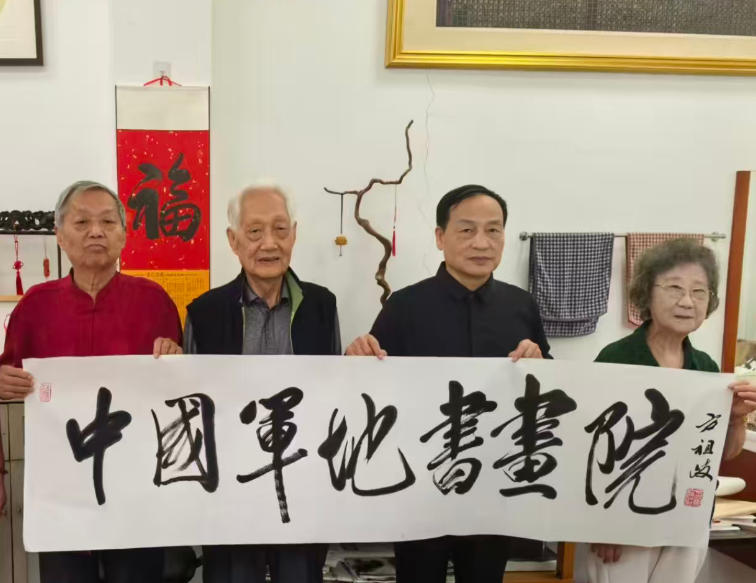 福
中國軍地書畫院
方祖岐